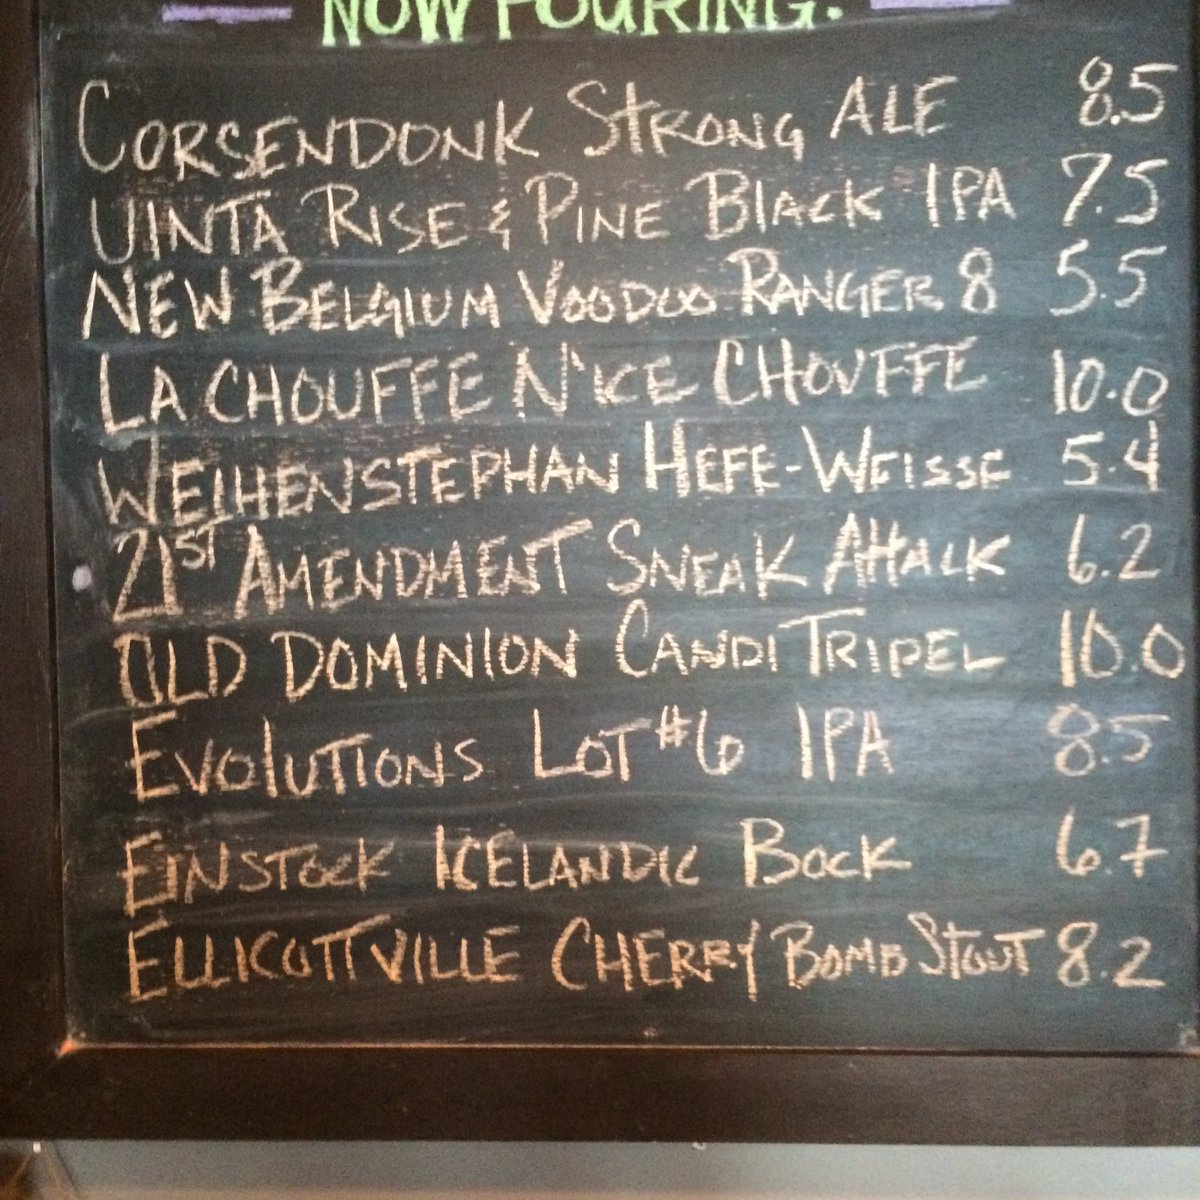 NOW POURING:
CORSENDONK STRONG ALE 8.5
UINTA RISE & PINE BLACK IPA 7.5
NEW BELGIUM VOODOO RANGER 8 5.5
LA CHOUFFE N'ICE CHOUFFE 10.0
WEIHENSTEPHAN HEFE-WEISSE 5.4
21ST AMENDMENT SNEAK ATTACK 6.2
OLD DOMINION CANDI TRIPEL 10.0
EVOLUTIONS LOT #6 IPA 8.5
EINSTOCK ICELANDIC BOCK 6.7
ELLICOTTVILLE CHERRY BOMB STOUT 8.2